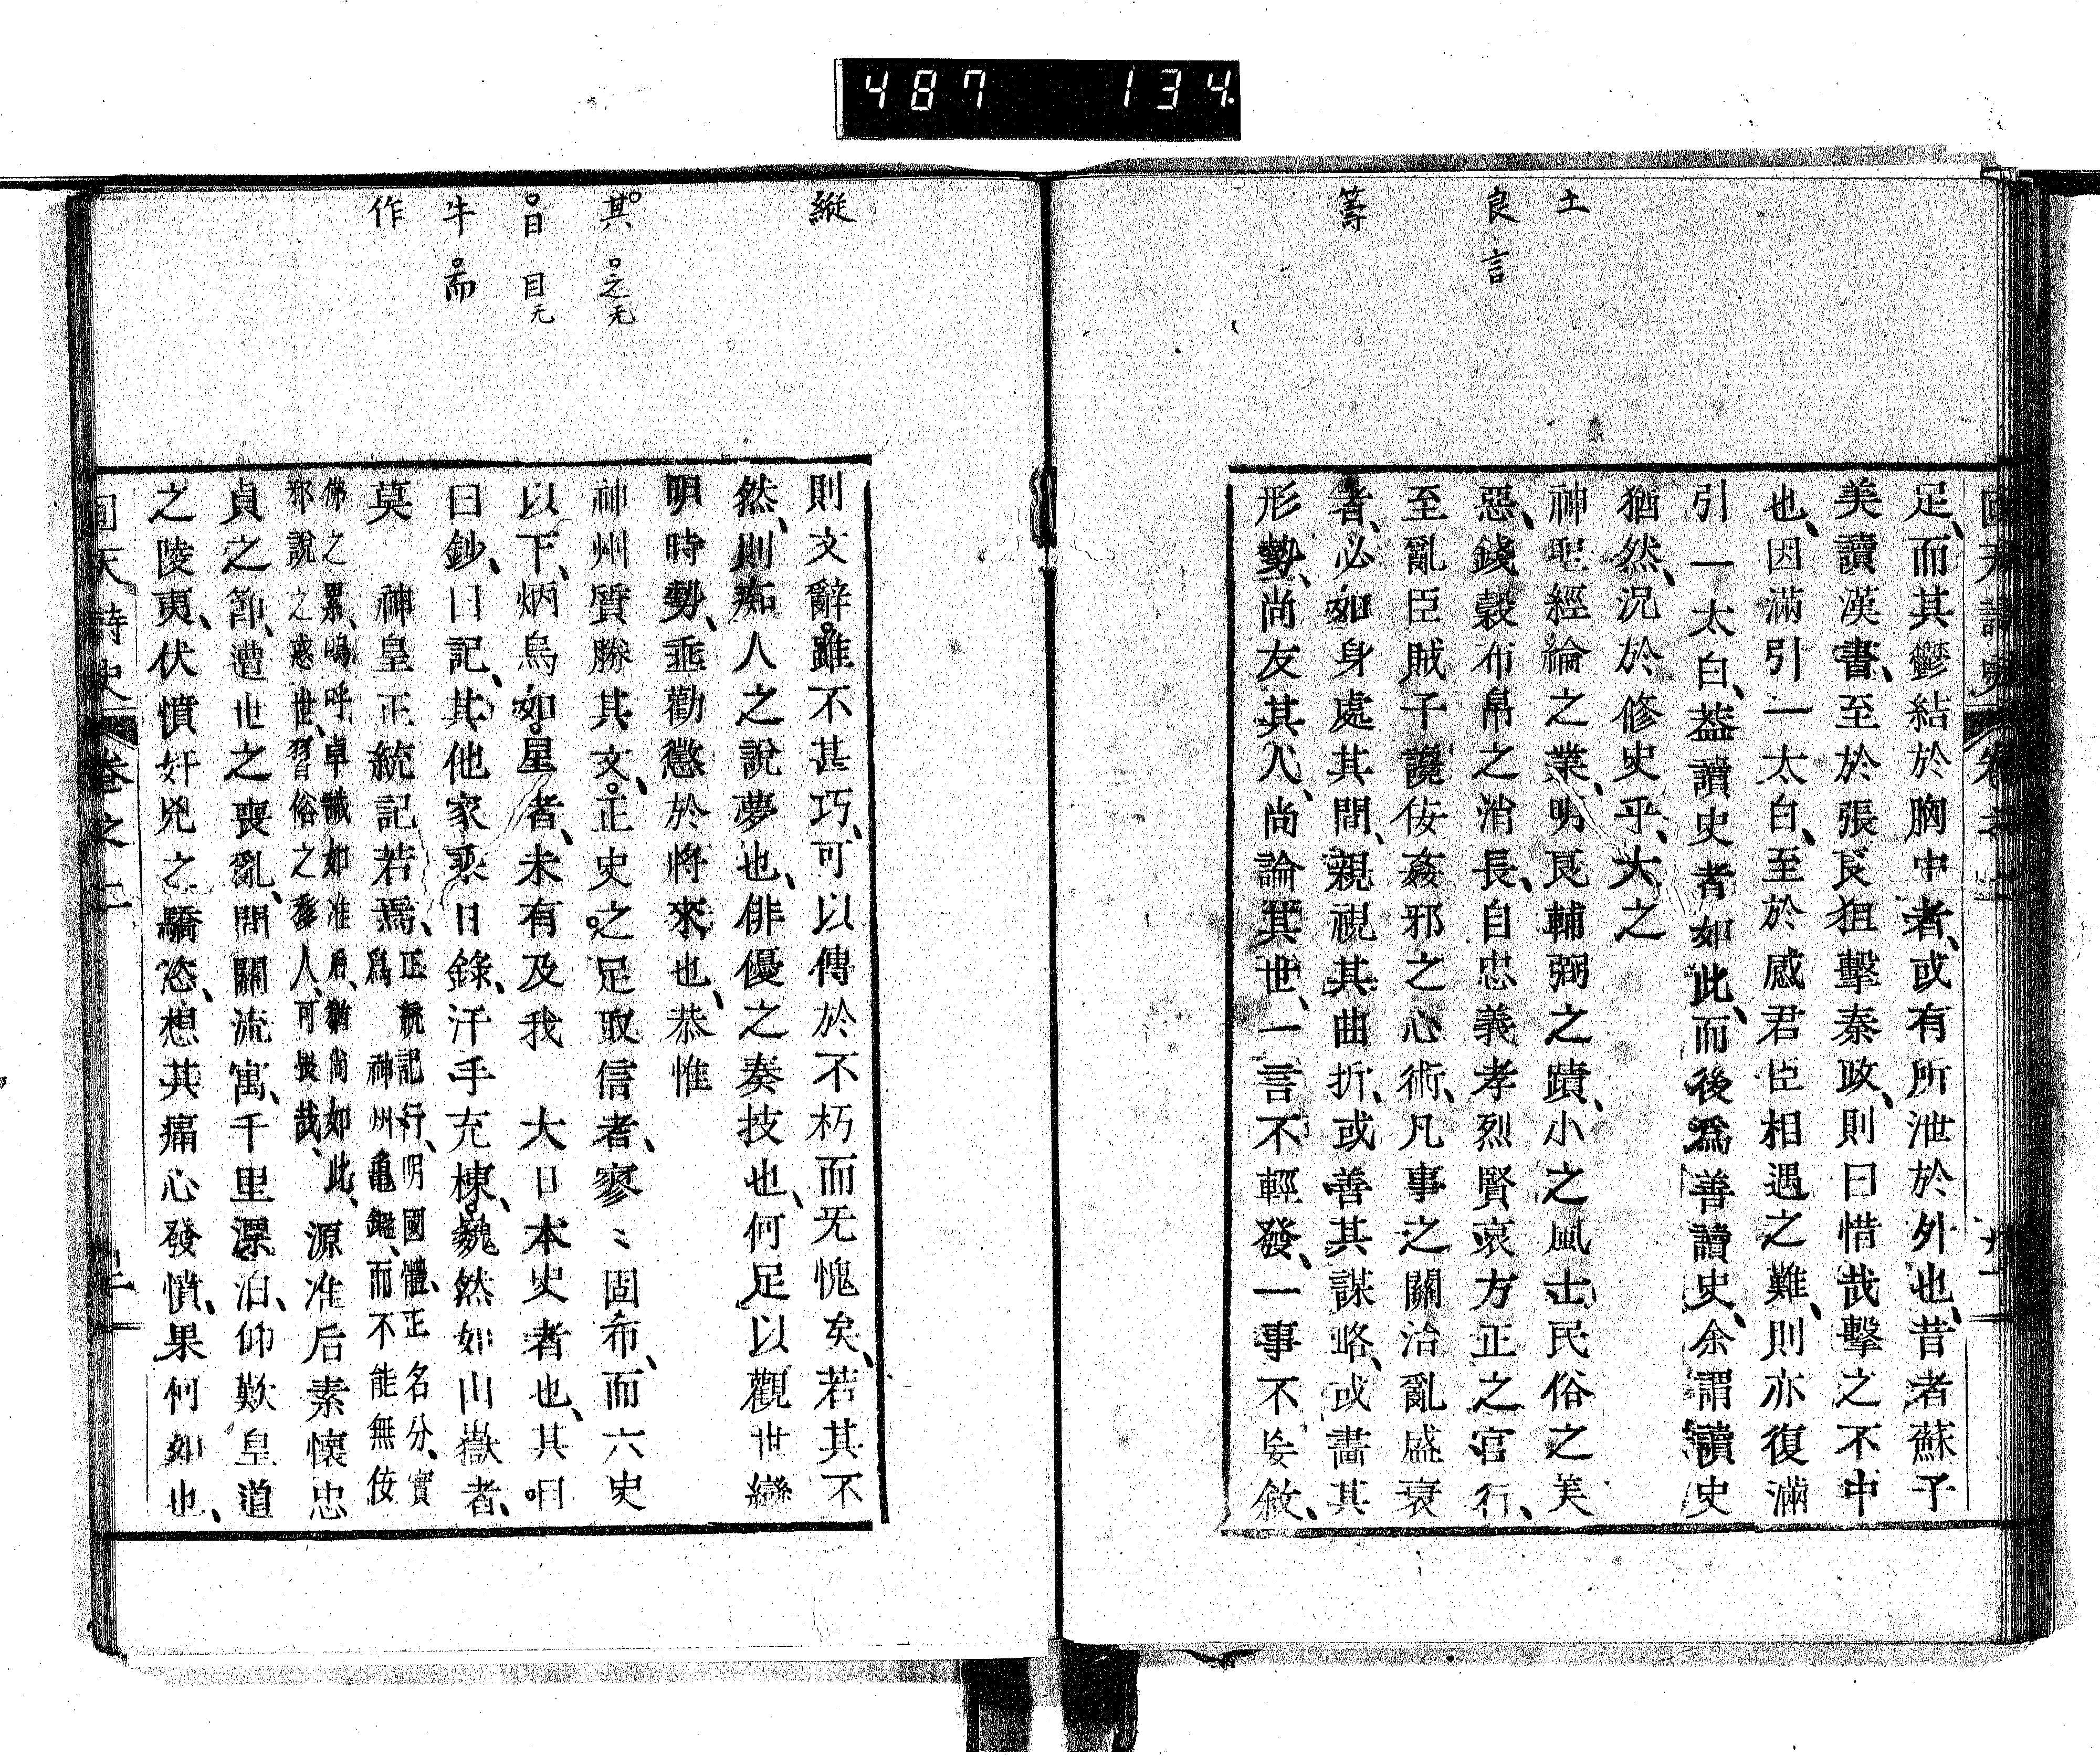 487 134
土
良 言
籌
足、而其鬱結於胸中者、或有所泄於外也、昔者蘇子
美讀漢書、至於張良狙擊秦政、則曰惜哉擊之不中
也、因滿引一太白、至於感君臣相遇之難、則亦復滿
引一太白、葢讀史者如此、而後爲善讀史、余謂讀史
猶然、況於修史乎、大之
神聖經綸之業、明良輔弼之蹟、小之風士民俗之美
惡、錢穀布帛之消長、自忠義孝烈賢哀方正之官行、
至亂臣賊子讒侫姦邪之心術、凡事之關治亂盛衰
者、必如身處其間、親視其曲折、或善其謀略、或畵其
形勢、尚友其人、尚論其世、一言不輕發、一事不妄敘、
縱
其 之无
日 目无
牛 而
作
則文辭雖不甚巧、可以傳於不朽而无愧矣、若其不
然、則痴人之說夢也、俳優之奏技也、何足以觀世變
明時勢、垂勸懲於將來也、恭惟
神州質勝其文、正史之足取信者、寥〻固希、而六史
以下、炳烏如星者、未有及我 大日本史者也、其曰
曰鈔、日記、其他家乘日錄、汗手充棟、巍然如山嶽者、
莫 神皇正統記若焉、正統記行、明國體、正名分、實
爲 神州龜鑑、而不能無侫
佛之累、嗚呼卓識如准后、猶尚如此、
邪說之惑世、習俗之移人、可畏哉、 源准后素懷忠
貞之節、遭世之喪亂、間關流寓、千里漂泊、仰歎皇道
之陵夷、伏憤奸兇之驕恣、想其痛心發憤、果何如也、
回天詩史 卷之二